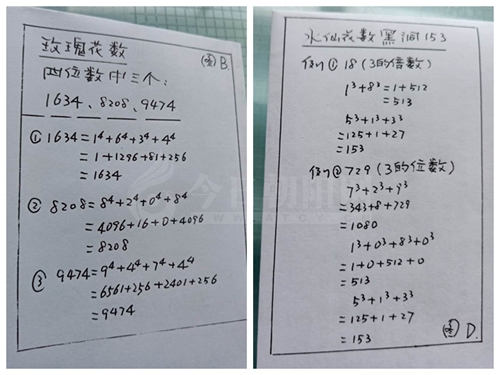 玫瑰花数
图B.
四位数中三个:
1634、8208、9474
①1634=1⁴+6⁴+3⁴+4⁴
=1+1296+81+256
=1634
②8208=8⁴+2⁴+0⁴+8⁴
=4096+16+0+4096
=8208
③9474=9⁴+4⁴+7⁴+4⁴
=6561+256+2401+256
=9474
水仙花数黑洞153
例①18(3的倍数)
1³+8³=1+512
=513
5³+1³+3³
=125+1+27
=153
例②729(3的倍数)
7³+2³+9³
=343+8+729
=1080
1³+0³+8³+0³
=1+0+512+0
=513
5³+1³+3³
=125+1+27
=153
图D.